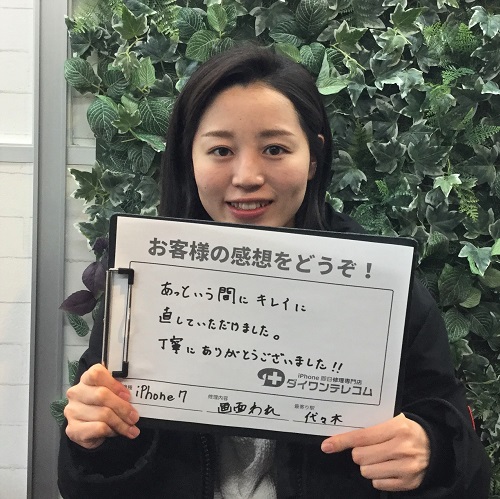 お客様の感想をどうぞ！
あっという間に キレイに
直していただけました。
丁寧にありがとうございました!!
iPhone 即日修理専門店
ダイワンテレコム
機種 iPhone7 修理内容 画面われ 最寄り駅 代々木